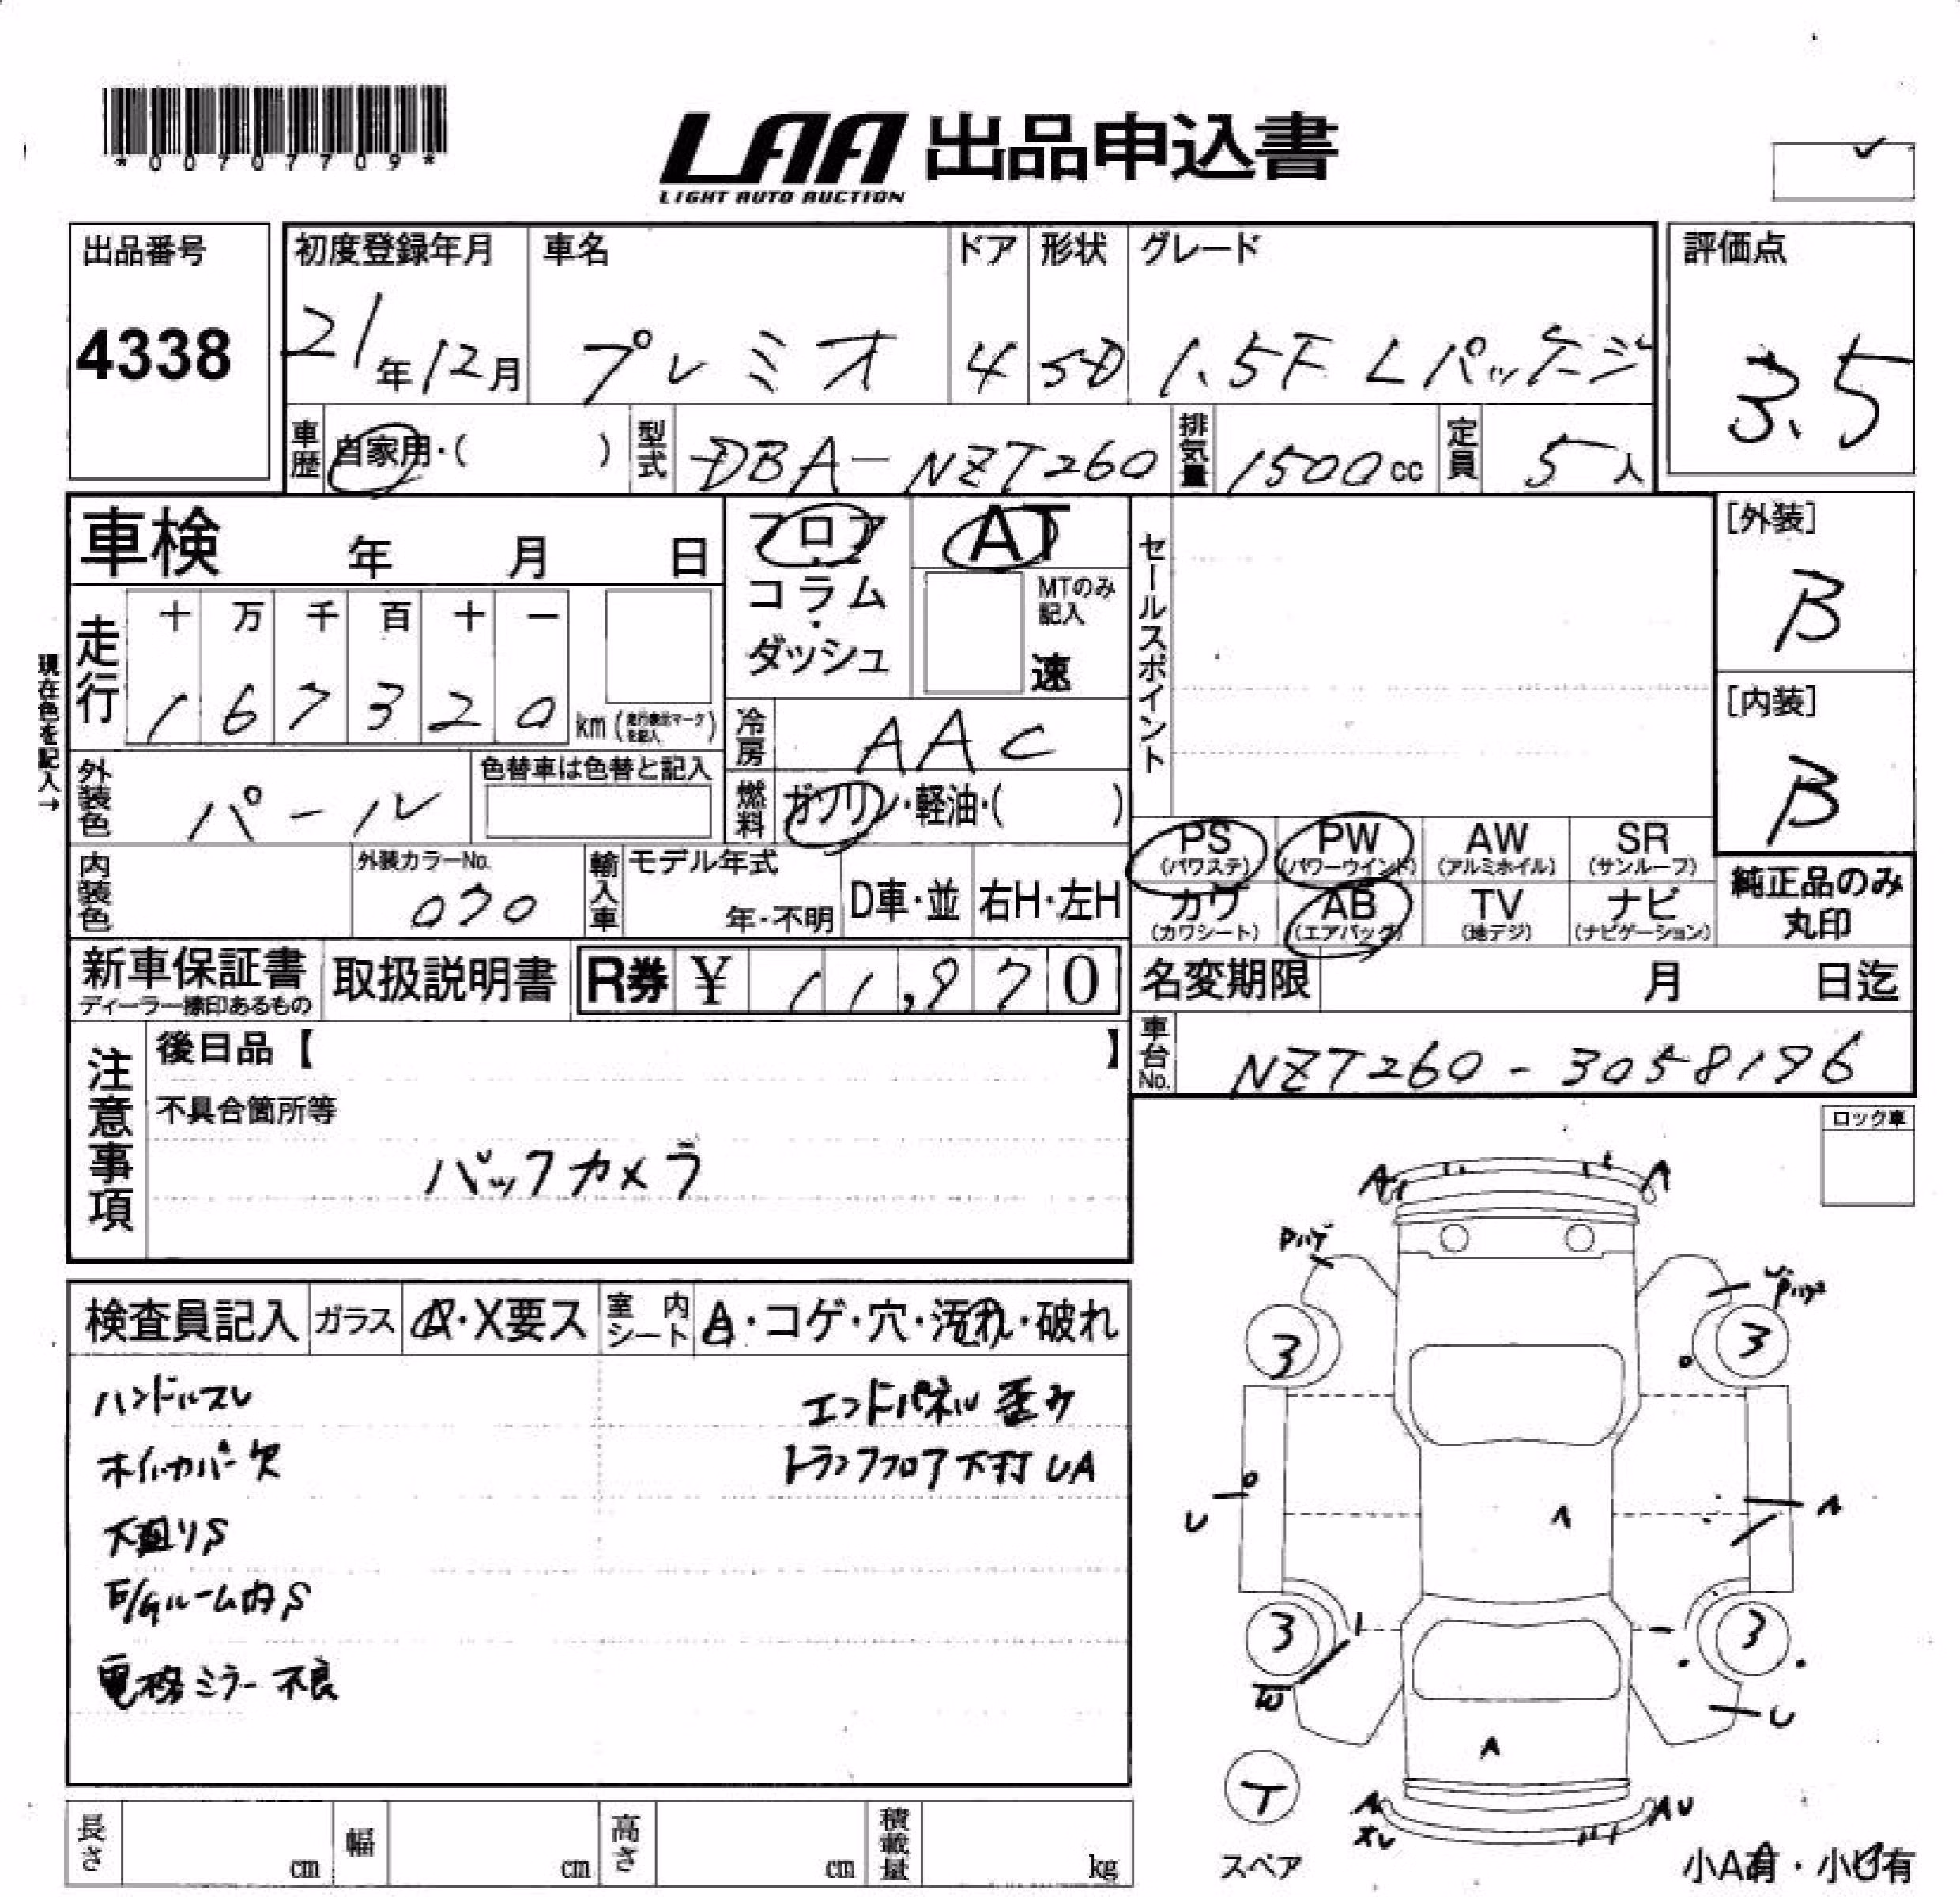 *00707709*
LAA 出品申込書
LIGHT AUTO AUCTION
出品番号
4338
初度登録年月 車名 ドア 形状 グレード
21年12月 プレミオ 4 SD 1.5F Lパッケージ
評価点
3.5
車歴 自家用・( ) 型式 DBA-NZT260 排気量 1500cc 定員 5人
車検 年 月 日
フロア・コラム・ダッシュ
AT
MTのみ記入
速
セールスポイント
[外装]
B
[内装]
B
現在色を記入→
走行 十 万 千 百 十 一
1 6 7 3 2 0 km (走行表示マークを記入)
冷房 AAC
外装色 パール 色替車は色替と記入
燃料 ガソリン・軽油・( )
PS (パワステ) PW (パワーウインド) AW (アルミホイル) SR (サンルーフ)
カワ (カワシート) AB (エアバッグ) TV (地デジ) ナビ (ナビゲーション)
純正品のみ丸印
内装色 外装カラーNo. 070 輸入車 モデル年式 年・不明 D車・並 右H・左H
新車保証書 ディーラー捺印あるもの 取扱説明書 R券 ¥ 11,970
名変期限 月 日迄
車台No. NZT260-3058196
注意事項
後日品【 】
不具合箇所等
バックカメラ
ロック車
検査員記入 ガラス A・X要ス 室内シート A・コゲ・穴・汚れ・破れ
ハンドルスレ エンドパネル歪み
ホイルカバー欠 トランクフロア下打UA
下廻りS
E/GルームカS
電格ミラー不良
A A
Pハゲ
3 3
U A
A
3 3
W U
A
T
スペア
A AU
XU
小A有・小U有
長さ cm 幅 cm 高さ cm 積載量 kg